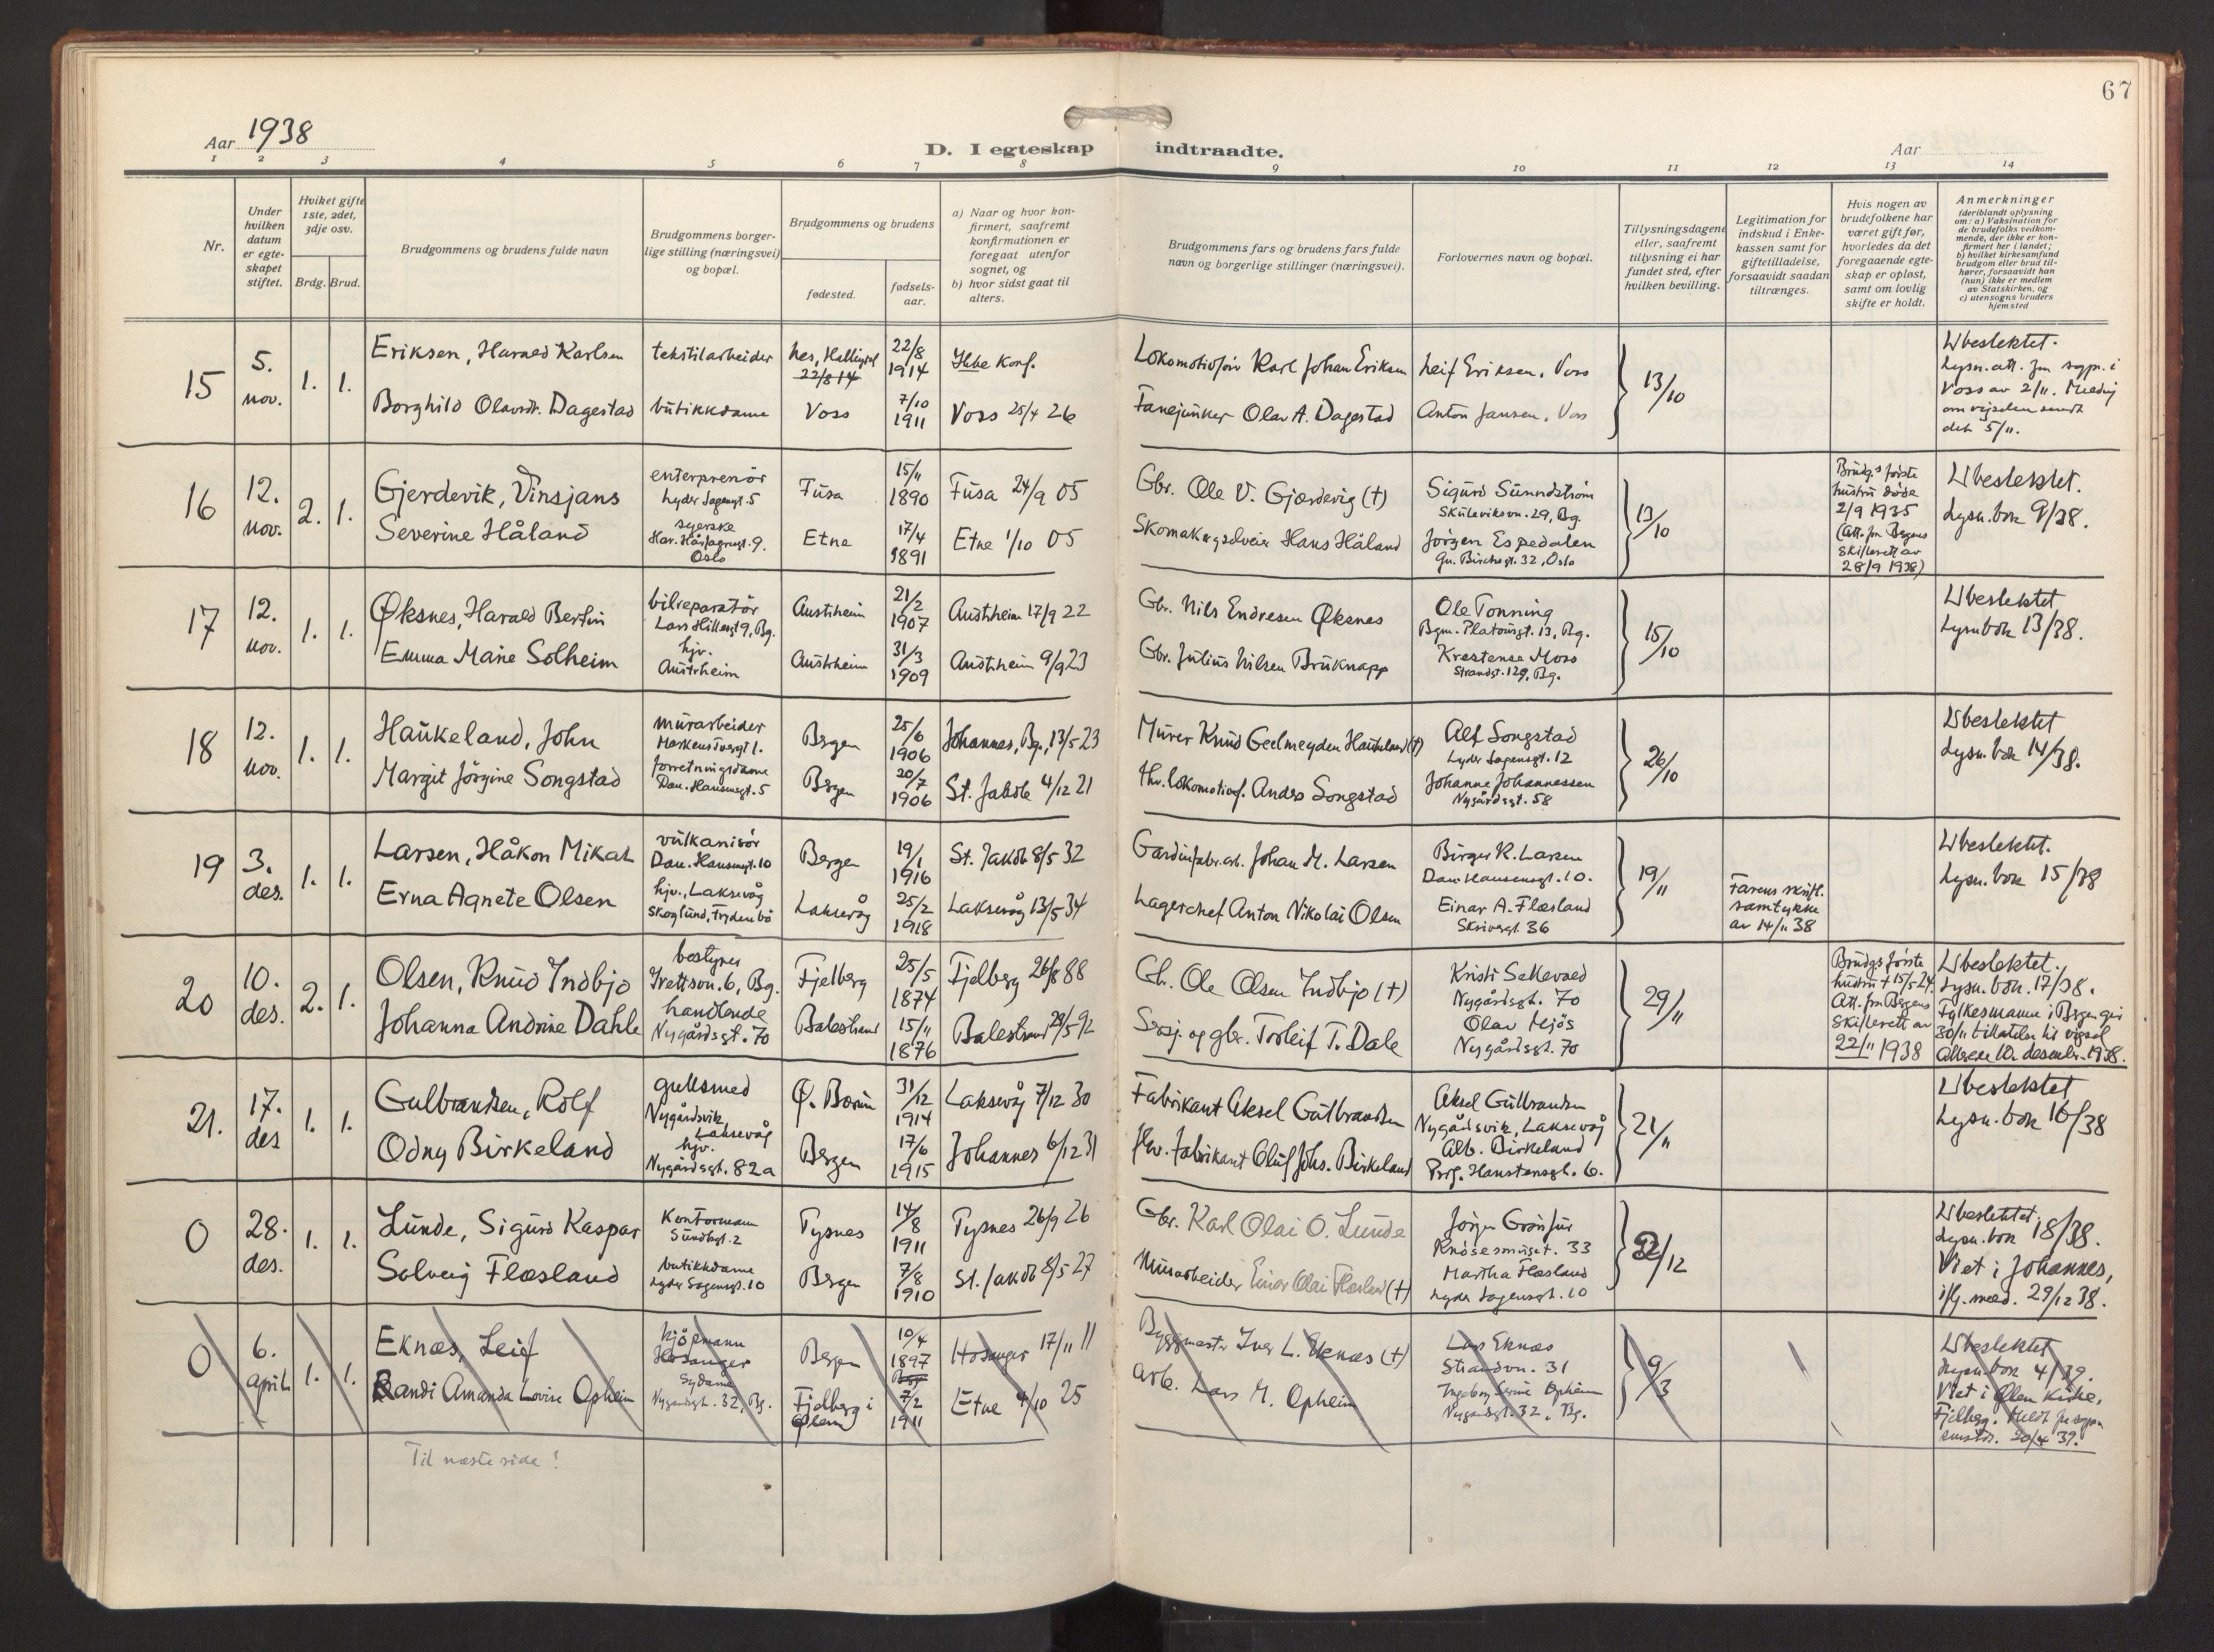 67
Aar 1938
D. I egteskap indtraadte.
Aar
1 2 3 4 5 6 7 8 9 10 11 12 13 14
Nr.
Under hvilken datum er egteskapet stiftet.
Hvilket gifte 1ste, 2det, 3dje osv.
Brdg. Brud.
Brudgommens og brudens fulde navn
Brudgommens borgerlige stilling (næringsvei) og bopæl.
Brudgommens og brudens
fødested.
fødselsaar.
a) Naar og hvor konfirmert, saafremt konfirmationen er foregaat utenfor sognet, og
b) hvor sidst gaat til alters.
Brudgommens fars og brudens fars fulde navn og borgerlige stillinger (næringsvei).
Forlovernes navn og bopæl.
Tillysningsdagene eller, saafremt tillysning ei har fundet sted, efter hvilken bevilling.
Legitimation for indskud i Enkekassen samt for giftetilladelse, forsaavidt saadan tiltrænges.
Hvis nogen av brudefolkene har været gift før, hvorledes da det foregaaende egteskap er opløst, samt om lovlig skifte er holdt.
Anmerkninger
(deriblandt oplysning om: a) Vaksination for de brudefolks vedkommende, der ikke er konfirmert her i landet; b) hvilket kirkesamfund brudgom eller brud tilhører, forsaavidt han (hun) ikke er medlem av Statskirken, og c) utensogns bruders hjemsted
15
5. nov.
1. 1.
Eriksen, Harald Karlsen
tekstilarbeider
Nes, Hallingdal
22/8 14
22/8 1914
Ikke konf.
Lokomotivfører Karl Johan Eriksen
Leif Eriksen, Voss
13/10
Ubeslektet.
Lysn.att. fra sogpr. i
Voss av 2/11. Melding
om vigselen sendt
det 5/11.
Borghild Olavsdt. Dagestad
butikkdame
Voss
7/10 1911
Voss 25/4 26
Fanejunker Olav A. Dagestad
Anton Jansen, Voss
16
12. nov.
2. 1.
Gjerdevik, Vinsjans
enterprenör
Lyder Sagensgt. 5
Fusa
15/11 1890
Fusa 24/9 05
Gbr. Ole V. Gjærdevig (†)
Sigurd Sunndström
Skuleviksvn. 29, Bg.
13/10
Brudg.s første
hustru døde
2/9 1935
(Att. fra Bergens
skifterett av
28/9 1938)
Ubeslektet.
Lysn.bok 9/38.
Severine Håland
syerske
Har. Hårfagresgt. 9.
Oslo
Etne
17/4 1891
Etne 1/10 05
Hans Håland
Jörgen Espedalen
32, Oslo
17
12. nov.
1. 1.
Øksnes, Harald Bertin
bilreparatör
Lars Hillesgt 9, Bg.
Austrheim
21/2 1907
Austrheim 17/9 22
Gbr. Nils Endresen Øksnes
Ole Tonning
Bgm. Platousgt. 13, Bg.
15/10
Ubeslektet
Lysn.bok 13/38.
Emma Marie Solheim
hjv.
Austrheim
Austrheim
31/3 1909
Austrheim 9/9 23
Gbr. Julius Nilsen Bruknapp
Krestense Moss
Strandgt. 129, Bg.
18
12. nov.
1. 1.
Haukeland, John
murarbeider
Bergen
25/6 1906
Johannes, Bg., 13/5 23
Murer Knud Geelmeyden Haukeland (†)
Alf Songstad
Lyder Sagensgt. 12
26/10
Ubeslektet
Lysn.bok 14/38.
Margit Jörgine Songstad
forretningsdame
Dan. Hansensgt. 5
Bergen
20/7 1906
St. Jakob 4/12 21
fhv. lokomotivf. Anders Songstad
Johanne Johannessen
Nygårdsgt. 58
19
3. des.
1. 1.
Larsen, Håkon Mikal
vulkanisör
Dan. Hansensgt. 10
Bergen
19/1 1916
St. Jakob 8/5 32
Gardinfabr.arb. Johan M. Larsen
Birger R. Larsen
Dan. Hansensgt. 10.
19/11
Farens skriftl.
samtykke
av 14/11 38
Ubeslektet.
Lysn.bok 15/38
Erna Agnete Olsen
hjv., Laksevåg
Skoglund, Frydenbö
Laksevåg
25/2 1918
Laksevåg 13/5 34
Lagerchef Anton Nikolai Olsen
Einar A. Flæsland
Skivergt. 36
20
10. des.
2. 1.
Olsen, Knud Indbjo
bestyrer
6, Bg.
Fjelberg
25/5 1874
Fjelberg 26/8 88
Gb. Ole Olsen Indbjo (†)
Kristi Sellevold
Nygårdsgt. 70
29/11
Brudgs første
hustru † 15/5 24.
Att. fra Bergens
skifterett av
22/11 1938
Ubeslektet.
Lysn.bok. 17/38.
Fylkesmannen i Bergen gir
30/11 tillatelse til vigsel
allerede 10. desembr. 1938.
Johanna Andrine Dahle
handlende
Nygårdsgt. 70
Balestrand
15/11 1876
Balestrand 29/5 92
Sersj. og gbr. Torleif T. Dale
Olav Mjös
Nygårdsgt. 70
21.
17. des
1. 1.
Gulbrandsen, Rolf
gullsmed
Nygårdsvik,
Laksevåg
Ø. Bærum
31/12 1914
Laksevåg 7/12 30
Fabrikant Aksel Gulbrandsen
Aksel Gulbrandsen
Nygårdsvik, Laksevåg
21/11
Ubeslektet
Lysn.bok 16/38
Odny Birkeland
hjv.
Nygårdsgt. 82a
Bergen
17/6 1915
Johannes 6/12 31
fhv. fabrikant Oluf Johs. Birkeland
Alb. Birkeland
Prof. Hanstensgt. 6.
0
28. des.
1. 1.
Lunde, Sigurd Kaspar
Kontormann
Sundtsgt. 2
Tysnes
14/8 1911
Tysnes 26/9 26
Gbr. Karl Olai O. Lunde
Jörgen Grönfur
Knösesmuget. 33
12/12
Ubeslektet.
Lysn.bok 18/38.
Viet i Johannes,
iflg. med. 29/12 38.
Solveig Flæsland
butikkdame
Lyder Sagensgt. 10
Bergen
7/8 1910
St. Jakob 8/5 27
Murarbeider Einar Olai Flæsland (†)
Martha Flæsland
Lyder Sagensgt. 10
0
6. april
1. 1.
Eknæs, Leif
kjöpmann
Hosanger
Bergen
10/4 1897
Hosanger 17/11 11
Byggmester Iver L. Eknæs (†)
Lars Eknæs
Strandvn. 31
9/3
Ubeslektet
Lysn.bok 4/39.
Viet i Ølen kirke,
Fjelberg. Meldt fra sogpr.
20/4 39.
Randi Amanda Lovise Opheim
Sydame
Nygårdsgt. 32, Bg.
Fjelberg i
Ølen
7/2 1911
Etne 4/10 25
Arb. Lars M. Opheim
Opheim
Nygårdsgt. 32, Bg.
Til næste side!